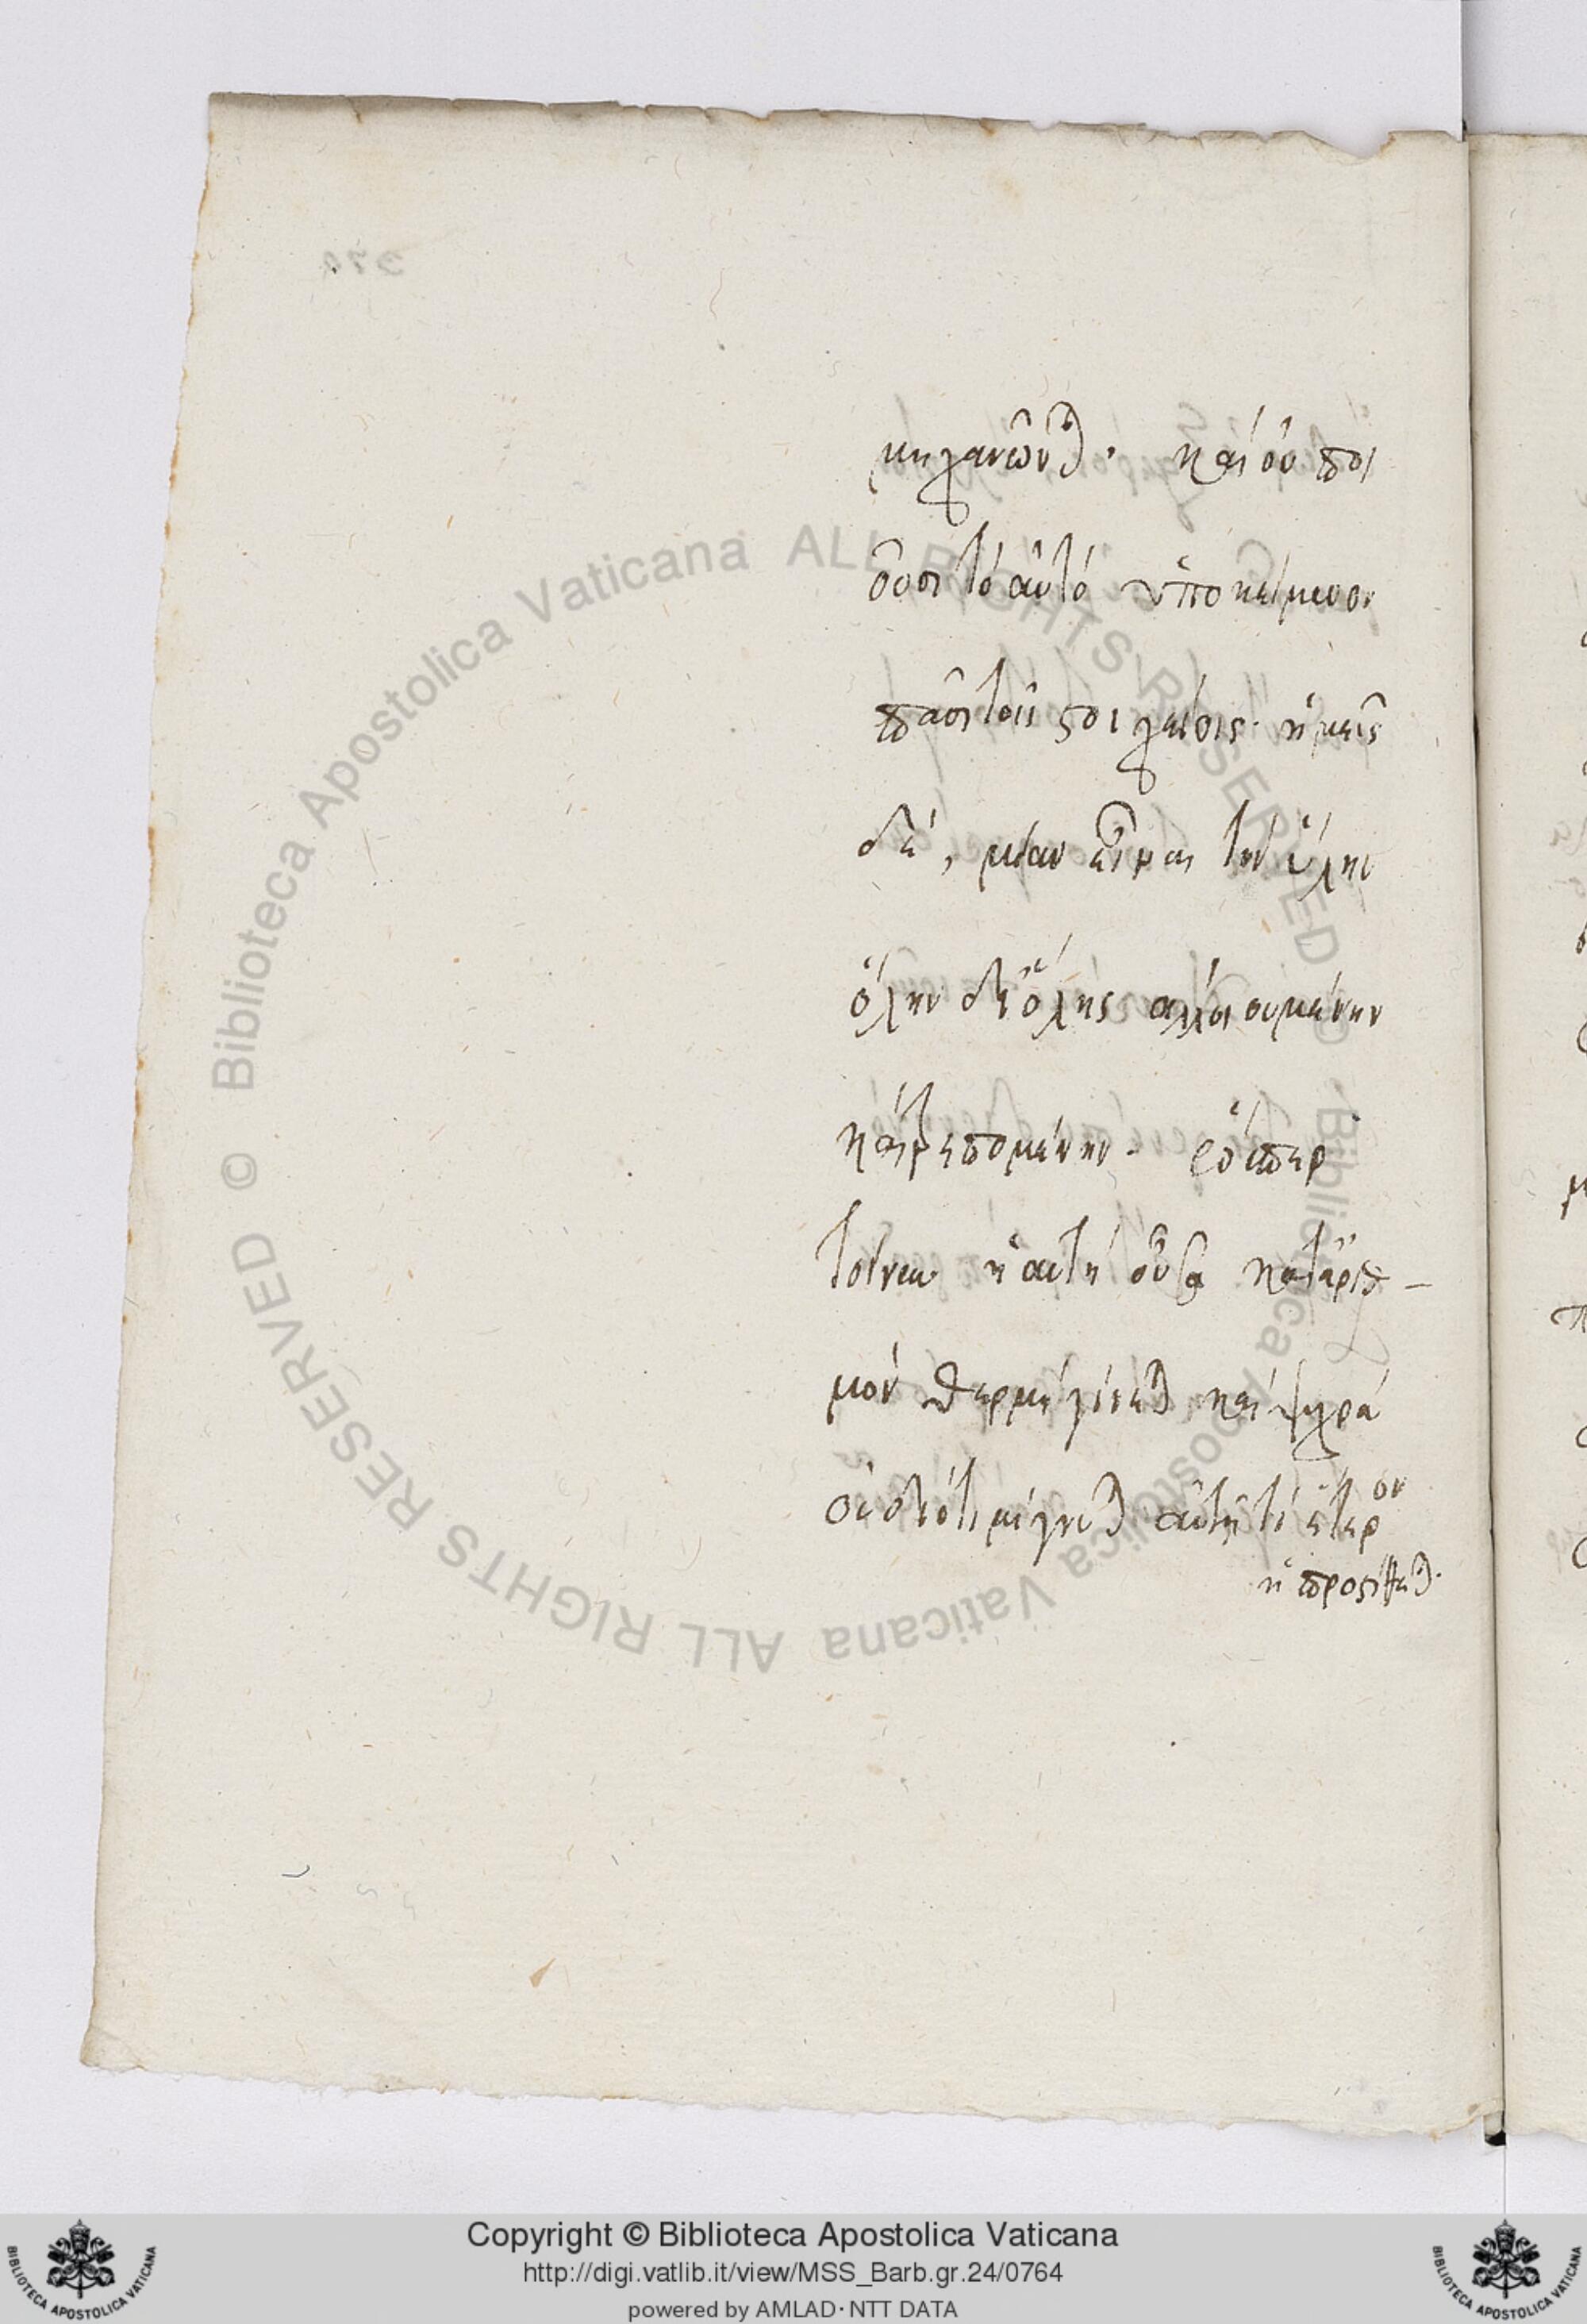 μηχανῶνται· καὶ οὐ ποι
οῦσι τὸ αὐτὸ ὑποκείμενον
πᾶσι τοῖς στοιχείοις· ἡμεῖς
δὲ, μίαν εἶναι τὴν ὕλην
ὅλην δι' ὅλης ἀλλοιουμένην
καὶ τρεπομένην·
τοίνυν ἡ αὐτὴ οὖσα κατ' ἀριθ-
μὸν θερμὴ γίνεται καὶ ψυχρὰ
οὐ διότι μίγνυται αὐτῇ τὶ ἕτερον
ἢ προστίθεται·
© Biblioteca Apostolica Vaticana ALL RIGHTS RESERVED © Biblioteca Apostolica Vaticana ALL RIGHTS RESERVED
Copyright © Biblioteca Apostolica Vaticana
http://digi.vatlib.it/view/MSS_Barb.gr.24/0764
powered by AMLAD · NTT DATA
BIBLIOTECA APOSTOLICA VATICANA
BIBLIOTECA APOSTOLICA VATICANA